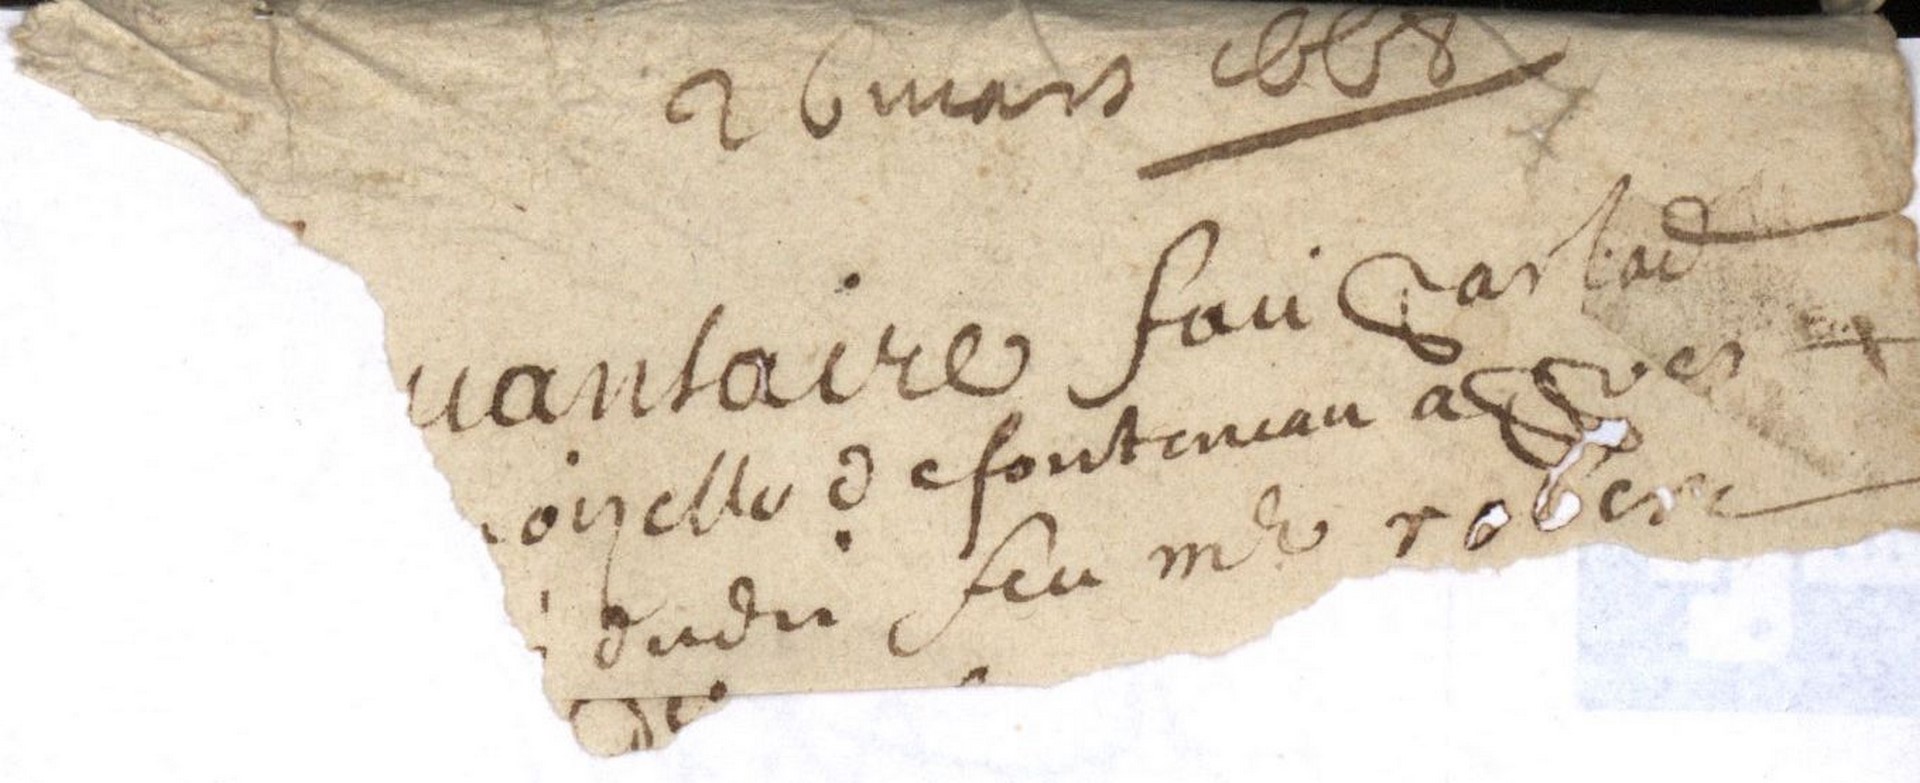 26 mars 1668
uantaire fait par lad
oizelle de fonteneau a
dudit feu me robert